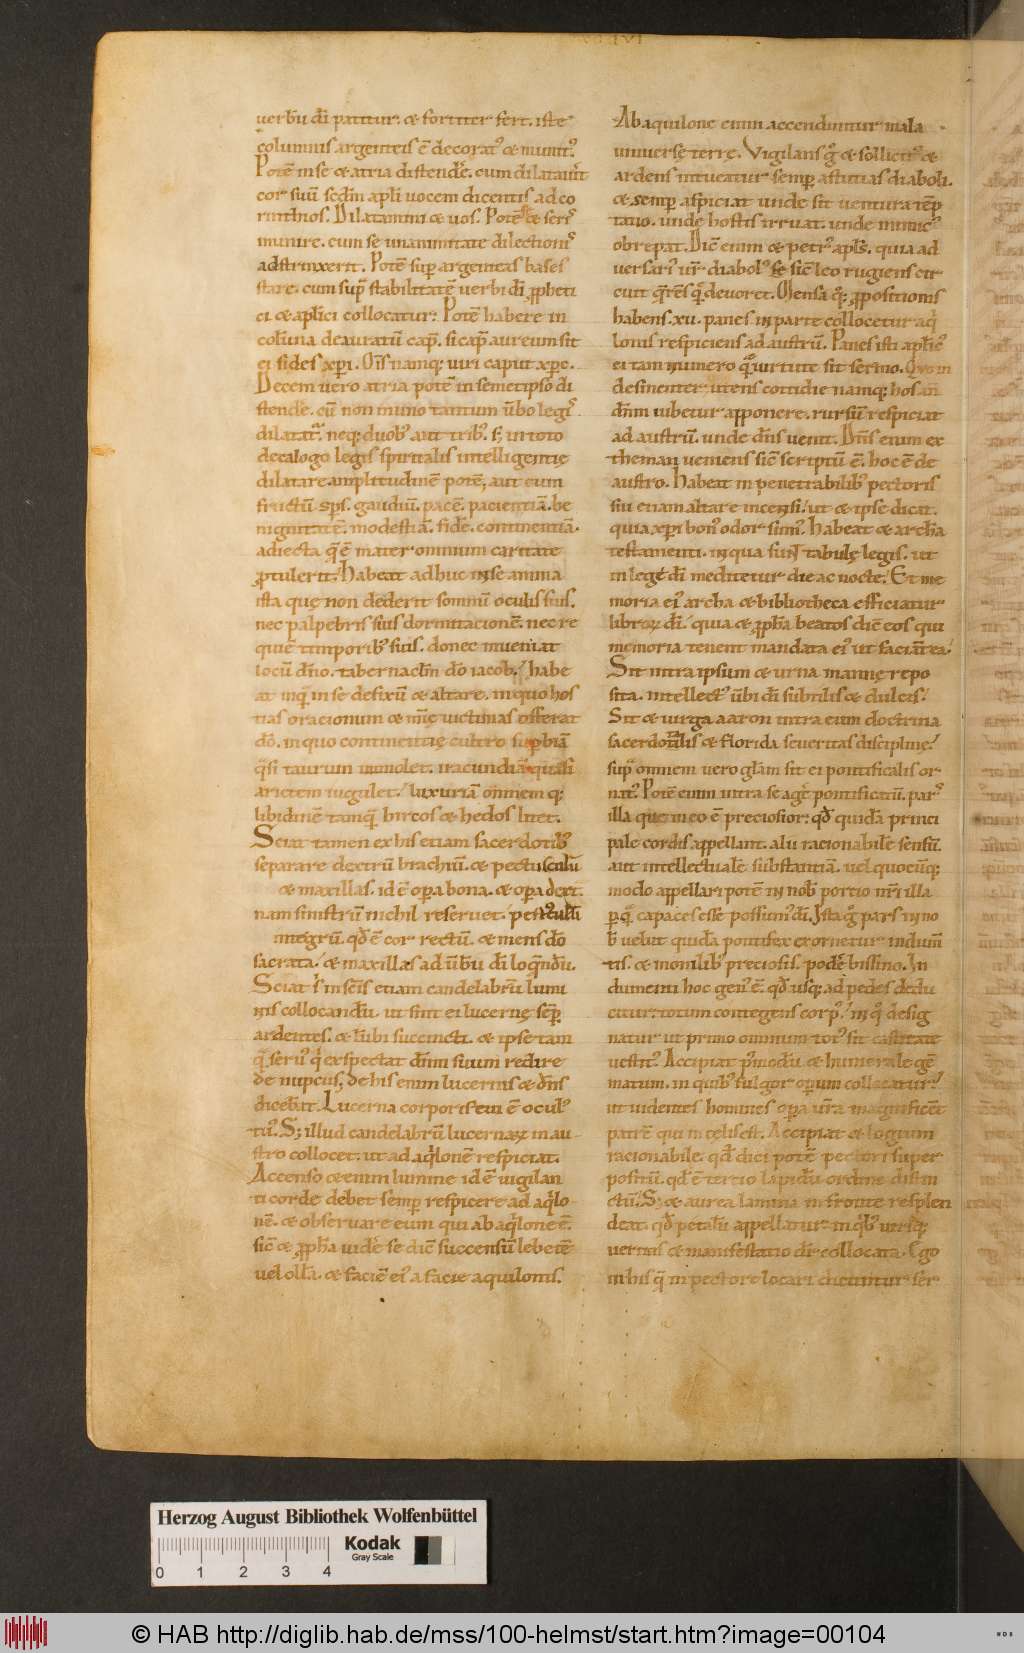 uerbũ dī patitur. & fortiter fert. iste
columnis argenteis ē decorat᾽ & munit᾽.
Potē in se & atria distendẽ. cum dilatauit
cor suũ scdm apli uocem dicentis ad co
rinthios. Dilatamini & uos. Potē & seris
munire. cum se unanimitate dilectionis
adstrinxerit. Potē sup argenteas bases
stare. cum sup stabilitatē uerbi dī ppheti
ci & aplici collocatur. Potē habere in
colũna deauratũ cap. si cap aureum sit
ei fides xpi. Ois namq; uiri caput xpc.
Decem uero atria potē in semetipso di
stendẽ. cũ non in uno tantum ũbo legis
dilatat. neq; duob᾽ aut trib᾽. s; in toto
decalogo legis spiritalis intelligentię
dilatare amplitudinē potē, aut cum
fructũ sps. gaudiũ. pacē. pacientiā. be
nignitatē. modestiā. fidē. continentiā.
adiecta q ē mater omnium caritate
ptulerit. Habeat adhuc in se anima
ista quę non dederit somnũ oculis suis.
nec palpebris suis dormitationē. nec re
quiē timporib᾽ suis. donec inueniat
locũ dño. tabernaclm dō iacob. habe
at inq in se defixũ & altare. in quo hos
tias oracionum & mię uictimas offerat
dō. in quo continentię cultro supbiā
qsi taurum immolet. iracundiā quasi
arietem iugulet. luxuriā omnem q;
libidinē tamq hircos & hedos litet.
Sciat tamen ex his etiam sacerdotib᾽
separare dextrũ brachiũ. & pectusculũ
& maxillas. id ē opera bona. & opa dext.
nam sinistrũ nichil reseruet. pectusculũ
integrũ. qd ē cor rectũ. & mens dō
sacrata. & maxillas ad ũbũ dī loquendũ.
Sciat in scis etiam candelabrũ lumi
nis collocandũ. ut sint ei lucernę sep
ardentes. & lumbi succincti. & ipse tam
q seru᾽ q exspectat dñm suum redire
de nuptiis; de his enim lucernis & dñs
dicebat. Lucerna corporis tui ē ocul᾽
tu᾽. S; illud candelabrũ lucernaꝝ in au
stro collocet. ut ad aqlonē respiciat.
Accenso &enim lumine id ē uigilan
ti corde debet semp respicere ad aqlo
nē. & obseruare eum qui ab aqlone ē.
sic & ppha uidẽ se dic succensũ lebetē
uel olla. & faciē ei᾽ a facie aquilonis.
Ab aquilone enim accenduntur mala
uniuersę terrę. Vigilans g & sollicit᾽ &
ardens intueatur semp astutias diaboli.
& semp aspiciat unde sit uentura tẽp
tatio. unde hostis irruat. unde inimic᾽
obrepat. Dic enim & petr᾽ apls. quia ad
uersari᾽ ur diabol᾽ sic leo rugiens cir
cuit qrẽs q deuoret. Mensa q; ppositionis
habens .xv. panes in parte collocetur aq
lonis respiciens ad austrũ. Panes isti aplic᾽
ei tam numero q uirtute sit sermo. Quo in
desinenter utens cottidie namq; hos añ
dñm iubetur apponere. rursũ respiciat
ad austrũ. unde dñs uenit. Dñs enim ex
theman ueniens sic scriptũ ē. hoc ē de
austro. Habeat in penetrabilib᾽ pectoris
sui etiam altare incensi. ut & ipse dicat.
quia xpi bon᾽ odor sum᾽. Habeat & archa
testamenti. in qua sunt tabulę legis. ut
in legē dī meditetur die ac nocte. Et me
moria ei᾽ archa & bibliotheca efficiatur
libroꝝ dī. quia & ppha beatos dic eos qui
memoria tenent mandata ei᾽ ut faciāt ea.
Sit intra ipsum & urna mannę repo
sita. intellect᾽ ũbi dī subtilis & dulcis.
Sit & uirga aaron intra eum doctrina
sacerdotalis & florida seueritas disciplinę.
supra omnem uero gliam sit ei pontificalis or
nat᾽. Potē enim intra se agẽ pontificatũ. pars
illa que in eo ē preciosior. qđ quidā princi
pale cordis appellant. alii racionabilē sensũ.
aut intellectualē substantiā. uel quocũq;
modo appellari potē in nob portio nri illa
p q capaces esse possum᾽ dī. Ista g pars in no
b uelut quidā pontifex exornetur indumen
tis. & monilib᾽ preciosis. podē bissino. In
dumenti hoc gen᾽ ē. qđ usq; ad pedes dedu
citur. totum contegens corp᾽. in q desig
natur ut primo omnium tot᾽ sit castitate
uestit᾽. Accipiat pmodũ & humerale gē
matum. in quib᾽ fulgor operum collocatur.
ut uidentes homines opa ura magnificẽt
patrē qui in celis est. Accipiat & logium
racionabile. qđ dici potē pectori super
positũ. qđ ē tertio lapidũ ordine distin
ctũ. S; & aurea lamina in fronte resplen
deat. qđ petalũ appellatur. in qb᾽ utrisq;
ueritas & manifestatio dr collocata. Ego
in his q in pectore locari dicuntur ser
Herzog August Bibliothek Wolfenbüttel
Kodak
Gray Scale
0 1 2 3 4
© HAB http://diglib.hab.de/mss/100-helmst/start.htm?image=00104